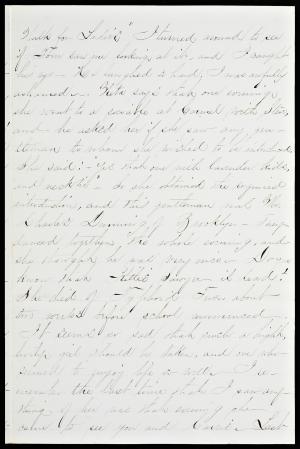 Walk for Ladies" I turned around to see
if Tom saw me looking at it, and I caught
his eye - He laughed so hard, I was awfully
ashamed - Kate says that one evening,
she went to a sociable at Carmel with
and she asked her if she saw any gen-
tleman to whom she wished to be introduced
She said: "Yes that one with lavender
and necktie - So she obtained the required
introduction, and the gentleman was Mr.
Charles of Brooklyn - They
danced together, the whole evening, and
she thought he was very nice. Do you
know that Kittie is dead?
She died of Typhoid Fever about
two weeks before school commenced -
It seems so sad that such a bright,
lively girl should be taken, and one who
seemed to enjoy life so well. I re-
member the last time that I saw any-
thing of her was that evening she
came to see you and Carrie. Last